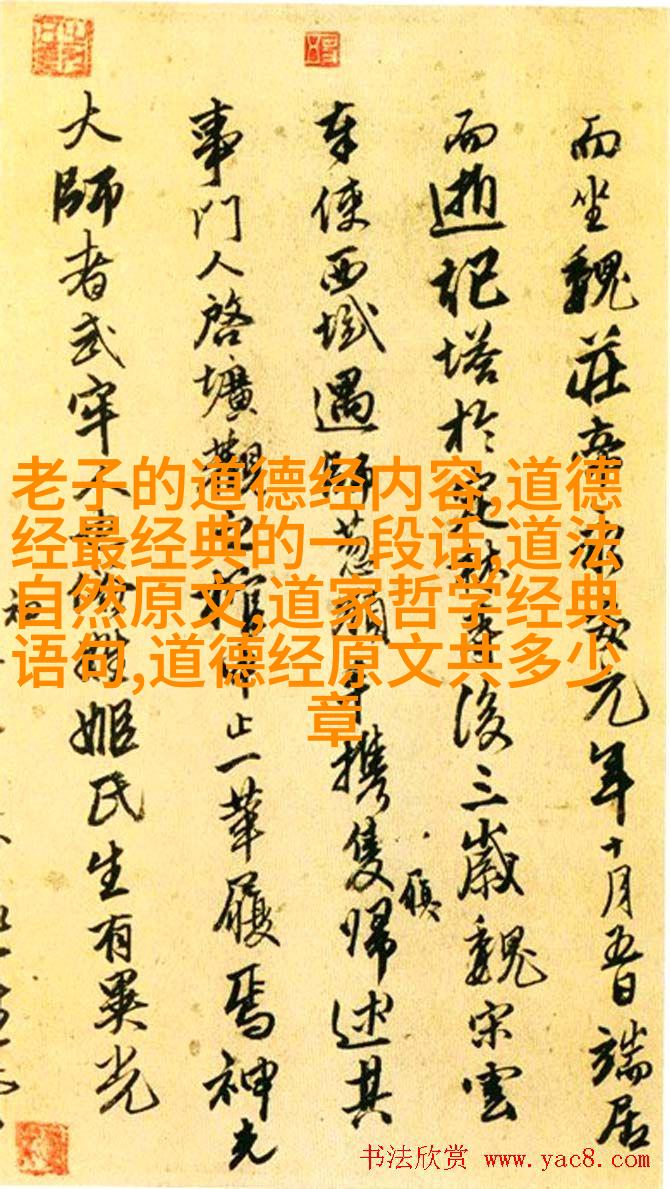 而坐魏莊帝元年十月五日端居
而逝記塔於定林後三歲魏宋雲
奉使西域遇師葱嶺手携隻履歸述其
事門人啓壙觀之棺止一革履焉神光
大師者武牢人姬氏生有異光
老子的道德经内容,道德
经最经典的一段话,道法
自然原文,道家哲学经典
语句,道德经原文共多少
章
书法欣赏 www.yac8.com